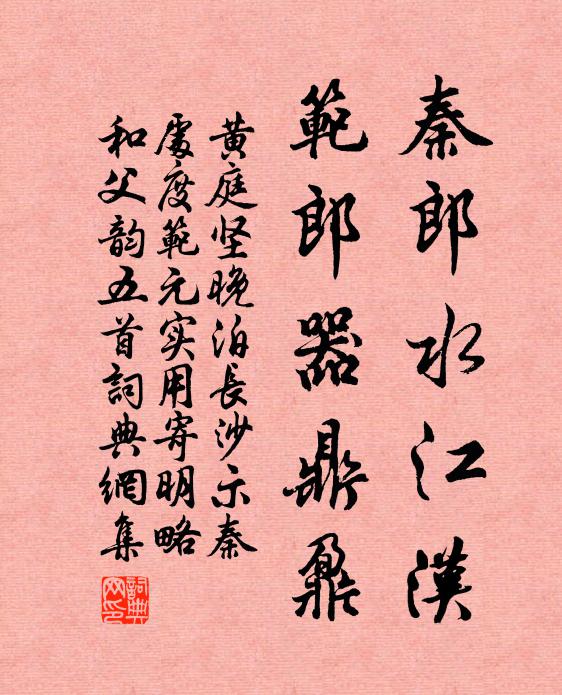 秦郎水江漢
範郎器鼎鼐
黄庭坚晚泊長沙示秦
處度範元实用寄明略
和父韵五首詞典網集
詞典網印